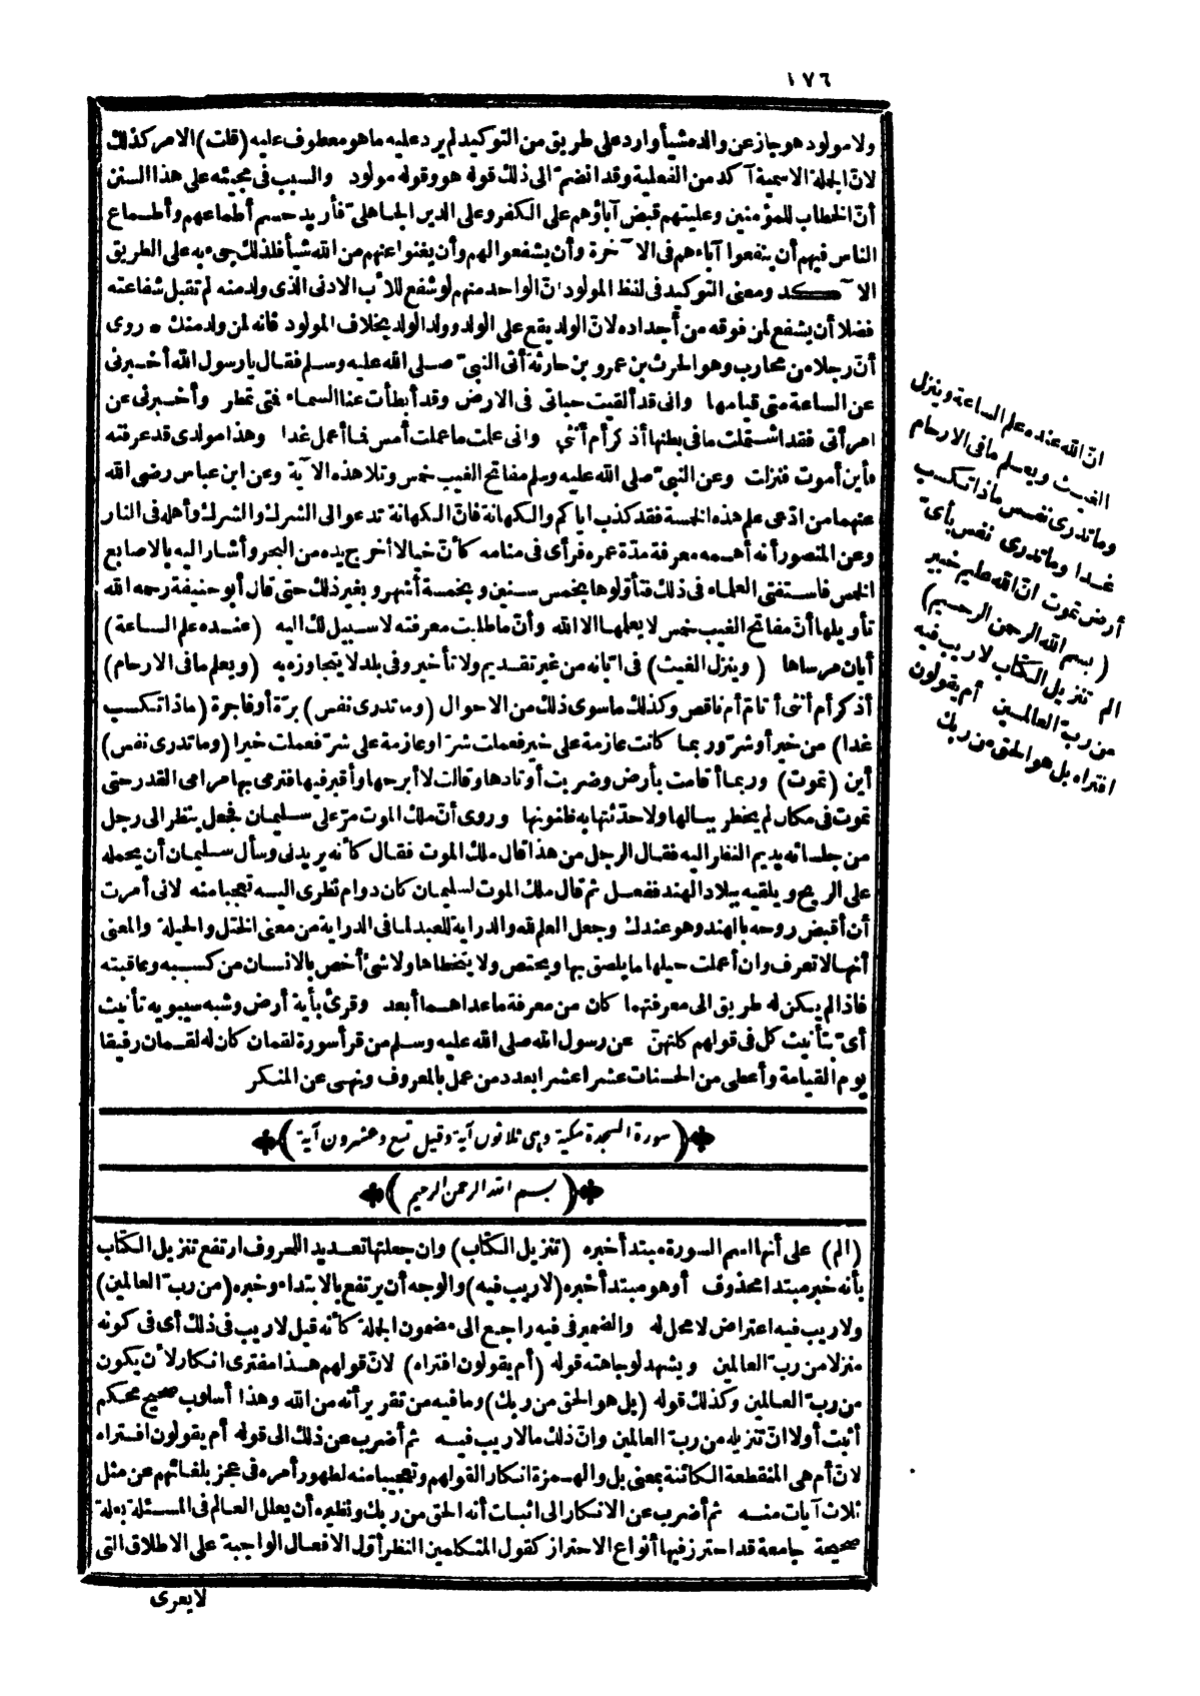 ١٧٦
ولا مولود هو جاز عن والده شيأ وارد على طريق من التوكيد لم يرد عليه ما هو معطوف عليه (قلت) الامر كذلك
لانّ الجملة الاسمية آكد من الفعلية وقد انضمّ الى ذلك قوله هو وقوله مولود والسبب فى مجيئه على هذا السنن
أنّ الخطاب للمؤمنين وعليتهم قبض آباؤهم على الكفر وعلى الدين الجاهلىّ فأريد حسم أطماعهم وأطماع
الناس فيهم أن ينفعوا آباءهم فى الآخرة وأن يشفعوا لهم وأن يغنوا عنهم من الله شيأ فلذلك جىء به على الطريق
الآكد ومعنى التوكيد فى لفظ المولود انّ الواحد منهم لو شفع للأب الادنى الذى ولد منه لم تقبل شفاعته
فضلا أن يشفع لمن فوقه من أجداده لانّ الولد يقع على الولد وولد الولد بخلاف المولود فانه لمن ولد منك * روى
أنّ رجلا من محارب وهو الحرث بن عمرو بن حارثة أتى النبىّ صلى الله عليه وسلم فقال يا رسول الله أخبرنى
عن الساعة متى قيامها وانى قد ألقيت حباتى فى الارض وقد أبطأت عنا السماء فتى تمطر وأخبرنى عن
امرأتى فقد اشتملت ما فى بطنها أذكر أم أنثى وانى علمت ما عملت أمس فما أعمل غدا وهذا مولدى قد عرفته
فأين أموت فنزلت وعن النبىّ صلى الله عليه وسلم مفاتح الغيب خمس وتلا هذه الآية وعن ابن عباس رضى الله
عنهما من ادّعى علم هذه الخمسة فقد كذب اياكم والكهانة فانّ الكهانة تدعو الى الشرك والشرك وأهله فى النار
وعن المنصور أنه أهمه معرفة مدّة عمره فرأى فى منامه كأنّ خيالا أخرج يده من البحر وأشار اليه بالاصابع
الخمس فاستفتى العلماء فى ذلك فتأولوها بخمس سنين وبخمسة أشهر وبغير ذلك حتى قال أبو حنيفة رحمه الله
تأويلها أنّ مفاتح الغيب خمس لا يعلمها الا الله وأنّ ما طلبت معرفته لا سبيل لك اليه (عنده علم الساعة)
أيان مرساها (وينزل الغيث) فى ابّانه من غير تقديم ولا تأخير وفى بلد لا يتجاوزه به (ويعلم ما فى الارحام)
أذكر أم أنثى أتامّ أم ناقص وكذلك ما سوى ذلك من الاحوال (وما تدرى نفس) برّة أو فاجرة (ماذا تكسب
غدا) من خير أو شرّ وربما كانت عازمة على خير فعملت شرّا وعازمة على شرّ فعملت خيرا (وما تدرى نفس)
أين (تموت) وربما أقامت بأرض وضربت أوتادها وقالت لا أبرحها وأقبر فيها فترمى بها مرامى القدر حتى
تموت فى مكان لم يخطر ببالها ولا حدّثتها به ظنونها وروى أنّ ملك الموت مرّ على سليمان فجعل ينظر الى رجل
من جلسائه يديم النظر اليه فقال الرجل من هذا قال ملك الموت فقال كأنه يريدنى وسأل سليمان أن يحمله
على الريح ويلقيه ببلاد الهند ففعل ثم قال ملك الموت لسليمان كان دوام نظرى اليه تعجبا منه لانى أمرت
أن أقبض روحه بالهند وهو عندك وجعل العلم لله والدراية للعبد لما فى الدراية من معنى الختل والحيلة والمعنى
أنها لا تعرف وان أعملت حيلها ما يلصق بها ويختص ولا يتخطاها ولا شئ أخص بالانسان من كسبه وعاقبته
فاذا لم يكن له طريق الى معرفتهما كان من معرفة ما عداهما أبعد وقرئ بأية أرض وشبه سيبويه تأنيث
أىّ بتأنيث كل فى قولهم كلتهنّ عن رسول الله صلى الله عليه وسلم من قرأ سورة لقمان كان له لقمان رفيقا
يوم القيامة وأعطى من الحسنات عشرا عشرا بعدد من عمل بالمعروف ونهى عن المنكر
(سورة السجدة مكية وهى ثلاثون آية وقيل تسع وعشرون آية)
(بسم الله الرحمن الرحيم)
(الم) على أنها اسم السورة مبتدأ خبره (تنزيل الكتاب) وان جعلتها تعديد اللحروف ارتفع تنزيل الكتاب
بأنه خبر مبتدا محذوف أو هو مبتدأ خبره (لا ريب فيه) والوجه أن يرتفع بالابتداء وخبره (من ربّ العالمين)
ولا ريب فيه اعتراض لا محل له والضمير فى فيه راجع الى مضمون الجملة كأنه قيل لا ريب فى ذلك أى فى كونه
منزلا من ربّ العالمين ويشهد لوجاهته قوله (أم يقولون افتراه) لانّ قولهم هذا مفترى انكار لأن يكون
من ربّ العالمين وكذلك قوله (بل هو الحق من ربك) وما فيه من تقرير أنه من الله وهذا أسلوب صحيح محكم
أثبت أولا انّ تنزيله من ربّ العالمين وانّ ذلك ما لا ريب فيه ثم أضرب عن ذلك الى قوله أم يقولون افتراه
لانّ أم هى المنقطعة الكائنة بمعنى بل والهمزة انكارا لقولهم وتعجيبا منه لظهور أمره فى عجز بلغائهم عن مثل
ثلاث آيات منه ثم أضرب عن الانكار الى اثبات أنه الحق من ربك ونظيره أن يعلل العالم فى المسئلة بعلة
صحيحة جامعة قد احترز فيها أنواع الاحتراز كقول المتكلمين النظر أوّل الافعال الواجبة على الاطلاق التى
لا يعرى
انّ الله عنده علم الساعة وينزل
الغيث ويعلم ما فى الارحام
وما تدرى نفس ماذا تكسب
غدا وما تدرى نفس بأىّ
أرض تموت انّ الله عليم خبير
(بسم الله الرحمن الرحيم)
الم تنزيل الكتاب لا ريب فيه
من ربّ العالمين أم يقولون
افتراه بل هو الحق من ربك